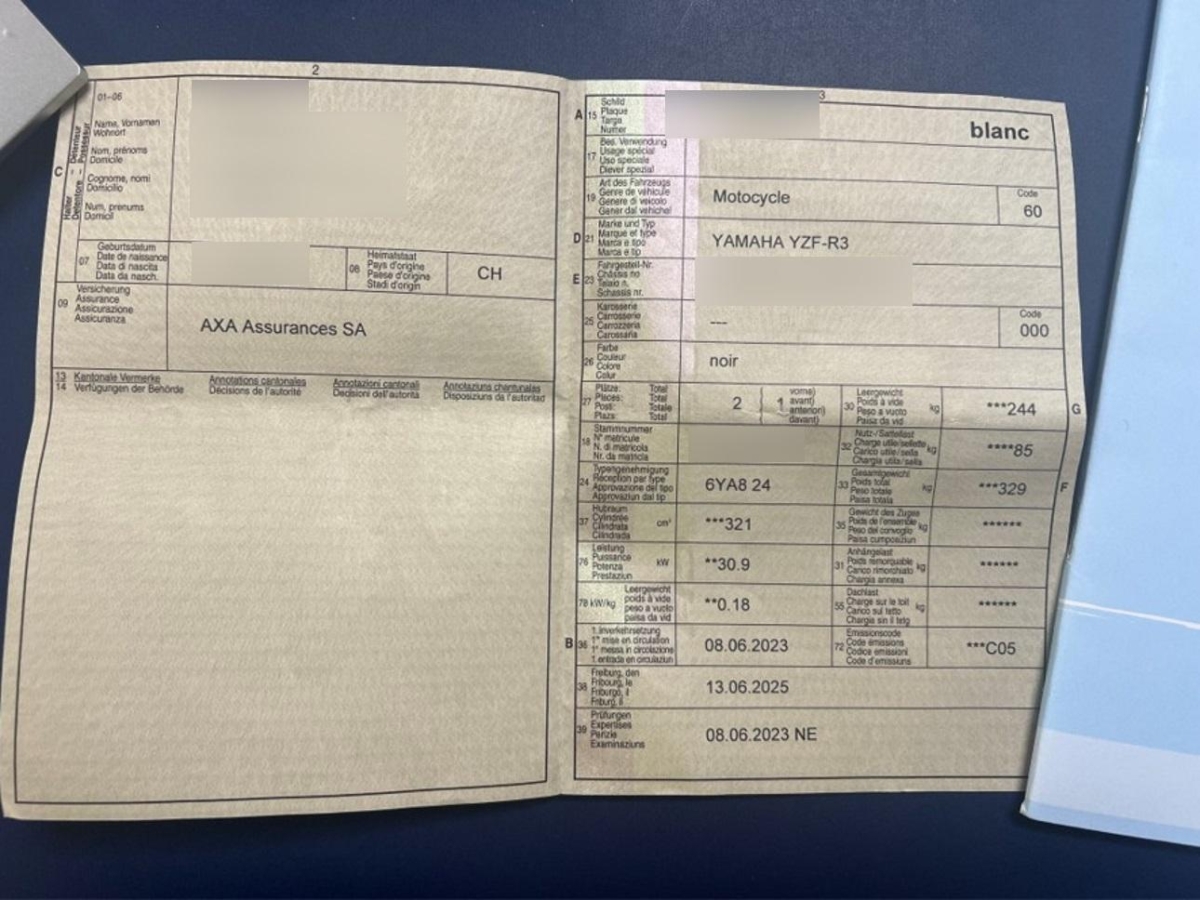 2
01-06
Name, Vornamen
Wohnort
Nom, prénoms
Domicile
Cognome, nomi
Domicilio
Num, prenums
Domicil
C
Halter - Détenteur
Detentore - Possessur
07
Geburtsdatum
Date de naissance
Data di nascita
Data da nasch.
08
Heimatstaat
Pays d'origine
Paese d'origine
Stadi d'origin
CH
09
Versicherung
Assurance
Assicurazione
Assicuranza
AXA Assurances SA
13 Kantonale Vermerke Annotations cantonales Annotazioni cantonali Annotaziuns chantunalas
14 Verfügungen der Behörde Décisions de l'autorité Decisioni dell'autorità Disposiziuns da l'autoritad
3
A 15
Schild
Plaque
Targa
Numer
blanc
17
Bes. Verwendung
Usage spécial
Uso speciale
Diever spezial
19
Art des Fahrzeugs
Genre de véhicule
Genere di veicolo
Gener dal vehichel
Motocycle
Code
60
D 21
Marke und Typ
Marque et type
Marca e tipo
Marca e tip
YAMAHA YZF-R3
E 23
Fahrgestell-Nr.
Châssis no
Telaio n.
Schassis nr.
25
Karosserie
Carrosserie
Carrozzeria
Carrossaria
---
Code
000
26
Farbe
Couleur
Colore
Colur
noir
27
Plätze: Total
Places: Total
Posti: Totale
Plazs: Total
2
1
vorne)
avant)
anteriori)
davant)
30
Leergewicht
Poids à vide
Peso a vuoto
Paisa da vid
kg
***244
G
18
Stammnummer
N° matricule
N. di matricola
Nr. da matricla
32
Nutz-/Sattellast
Charge utile/sellette
Carico utile/sella
Chargia utila/sella
kg
****85
24
Typengenehmigung
Réception par type
Approvazione del tipo
Approvaziun dal tip
6YA8 24
33
Gesamtgewicht
Poids total
Peso totale
Paisa totala
kg
***329
F
37
Hubraum
Cylindrée
Cilindrata
Cilindrada
cm³
***321
35
Gewicht des Zuges
Poids de l'ensemble
Peso del convoglio
Paisa cumposiziun
kg
******
76
Leistung
Puissance
Potenza
Prestaziun
kW
**30.9
31
Anhängelast
Poids remorquable
Carico rimorchiato
Chargia annexa
kg
******
78 kW/kg
Leergewicht
poids à vide
peso a vuoto
paisa da vid
**0.18
55
Dachlast
Charge sur le toit
Carico sul tetto
Chargia sin il tetg
kg
******
B 36
1. Inverkehrsetzung
1re mise en circulation
1a messa in circolazione
1. entrada en circulaziun
08.06.2023
72
Emissionscode
Code émissions
Codice emissioni
Code d'emissiuns
***C05
38
Freiburg, den
Fribourg, le
Friburgo, il
Friburg, ils
13.06.2025
39
Prüfungen
Expertises
Perizie
Examinaziuns
08.06.2023 NE